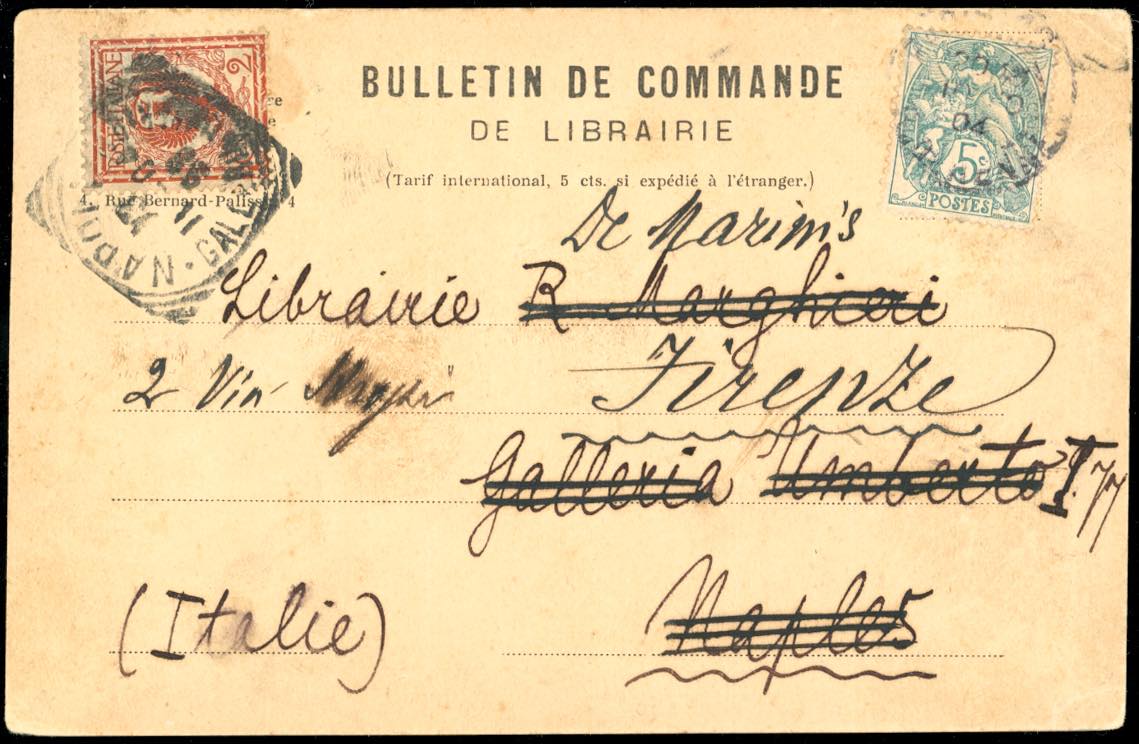 BULLETIN DE COMMANDE
DE LIBRAIRIE
(Tarif international, 5 cts. si expédié à l'étranger.)
4, Rue Bernard-Palissy, 4
POSTE ITALIANE 2
5c
POSTES
04
NAPOLI · GALLERIA
11
De Marinis
Librairie R Marghieri
2 Via
Firenze
Galleria Umberto I. 77
Naples
(Italie)